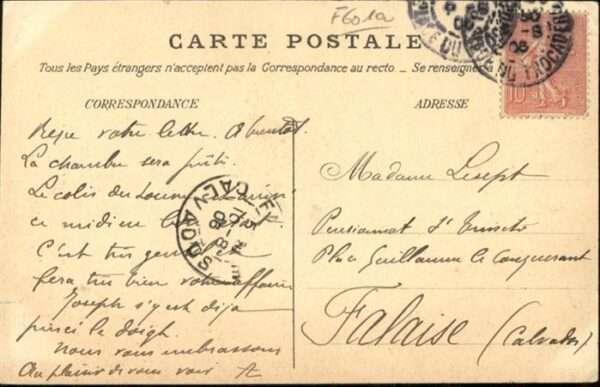 F601a
CARTE POSTALE
Tous les Pays étrangers n'acceptent pas la Correspondance au recto _ Se renseigner à
CORRESPONDANCE
ADRESSE
10
Reçu votre lettre. A bientot.
La chambre sera prête.
Le colis du Louvre
ce midi
C'est très
fera très bien votre affaire
Joseph s'y est déja
pincé le doigt.
Nous vous embrassons
Au plaisir de vous voir
CALVADOS
Madame
Pensionnat
Place Guillaume le Conquerant
Falaise (Calvados)